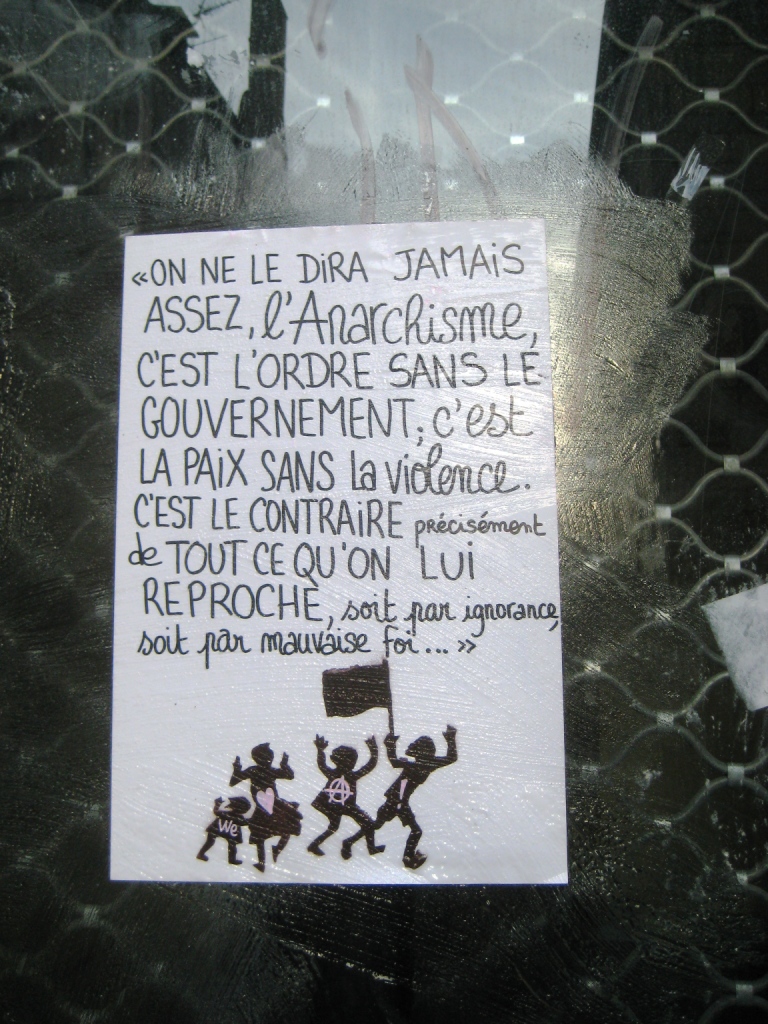 «ON NE LE DiRA JAMAiS
ASSEZ, l'Anarchisme,
C'EST L'ORDRE SANS LE
GOUVERNEMENT; c'est
LA PAiX SANS la violence.
C'EST LE CONTRAiRE précisément
de TOUT CE QU'ON LUi
REPROCHE, soit par ignorance,
soit par mauvaise foi... »
A !
We